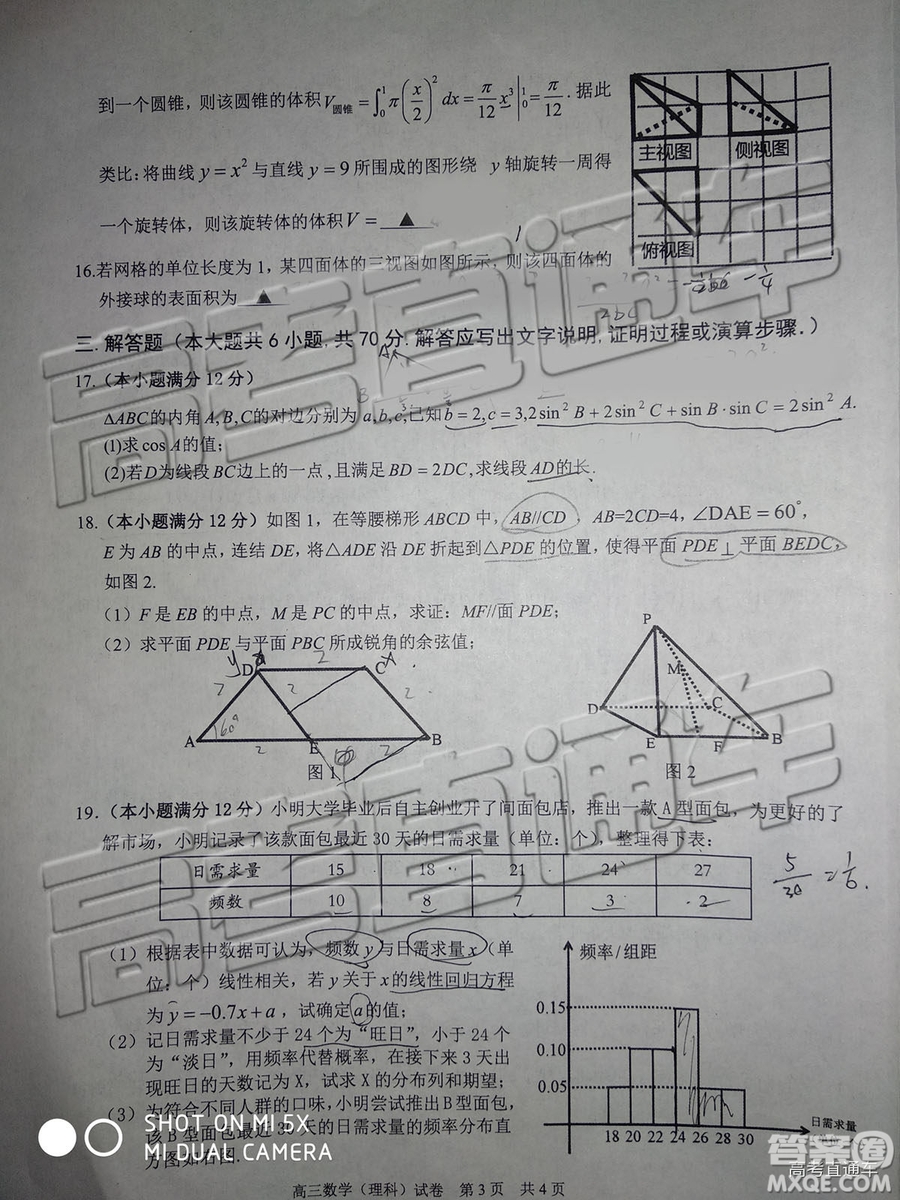 到一个圆锥，则该圆锥的体积V圆锥 = ∫₀¹ π(x/2)² dx = π/12 x³|₀¹ = π/12. 据此
类比：将曲线 y = x² 与直线 y = 9 所围成的图形绕 y 轴旋转一周得
一个旋转体，则该旋转体的体积V = ▲
主视图 侧视图
俯视图
16.若网格的单位长度为 1，某四面体的三视图如图所示，则该四面体的
外接球的表面积为 ▲
三. 解答题（本大题共 6 小题, 共 70 分. 解答应写出文字说明, 证明过程或演算步骤.）
17.（本小题满分 12 分）
ΔABC的内角A,B,C的对边分别为 a,b,c,已知b = 2,c = 3,2sin²B + 2sin²C + sinB·sinC = 2sin²A.
(1)求cosA的值;
(2)若D为线段BC边上的一点,且满足BD = 2DC,求线段AD的长.
18.（本小题满分 12 分）如图 1，在等腰梯形 ABCD 中，AB//CD，AB=2CD=4, ∠DAE = 60°,
E 为 AB 的中点，连结 DE，将△ADE 沿 DE 折起到△PDE 的位置，使得平面 PDE⊥平面 BEDC，
如图 2.
（1）F 是 EB 的中点，M 是 PC 的中点，求证：MF//面 PDE；
（2）求平面 PDE 与平面 PBC 所成锐角的余弦值；
D C
A E B
图 1
P
M
D C
E F B
图 2
19.（本小题满分 12 分）小明大学毕业后自主创业开了间面包店，推出一款 A 型面包，为更好的了
解市场，小明记录了该款面包最近 30 天的日需求量（单位：个），整理得下表：
日需求量 15 18 21 24 27
频数 10 8 7 3 2
5/30 = 1/6.
（1）根据表中数据可认为，频数 y 与日需求量 x（单
位：个）线性相关，若 y 关于 x 的线性回归方程
为 ŷ = −0.7x + a，试确定 a 的值；
（2）记日需求量不少于 24 个为“旺日”，小于 24 个
为“淡日”，用频率代替概率，在接下来 3 天出
现旺日的天数记为 X，试求 X 的分布列和期望；
（3）为符合不同人群的口味，小明尝试推出 B 型面包，
该 B 型面包最近 30 天的日需求量的频率分布直
方图如右图.
频率/组距
0.15
0.10
0.05
18 20 22 24 26 28 30
日需求量
高三数学（理科）试卷 第 3 页 共 4 页
高考直通车
SHOT ON MI 5X
MI DUAL CAMERA
答案圈
高考直通车
MXQE.COM